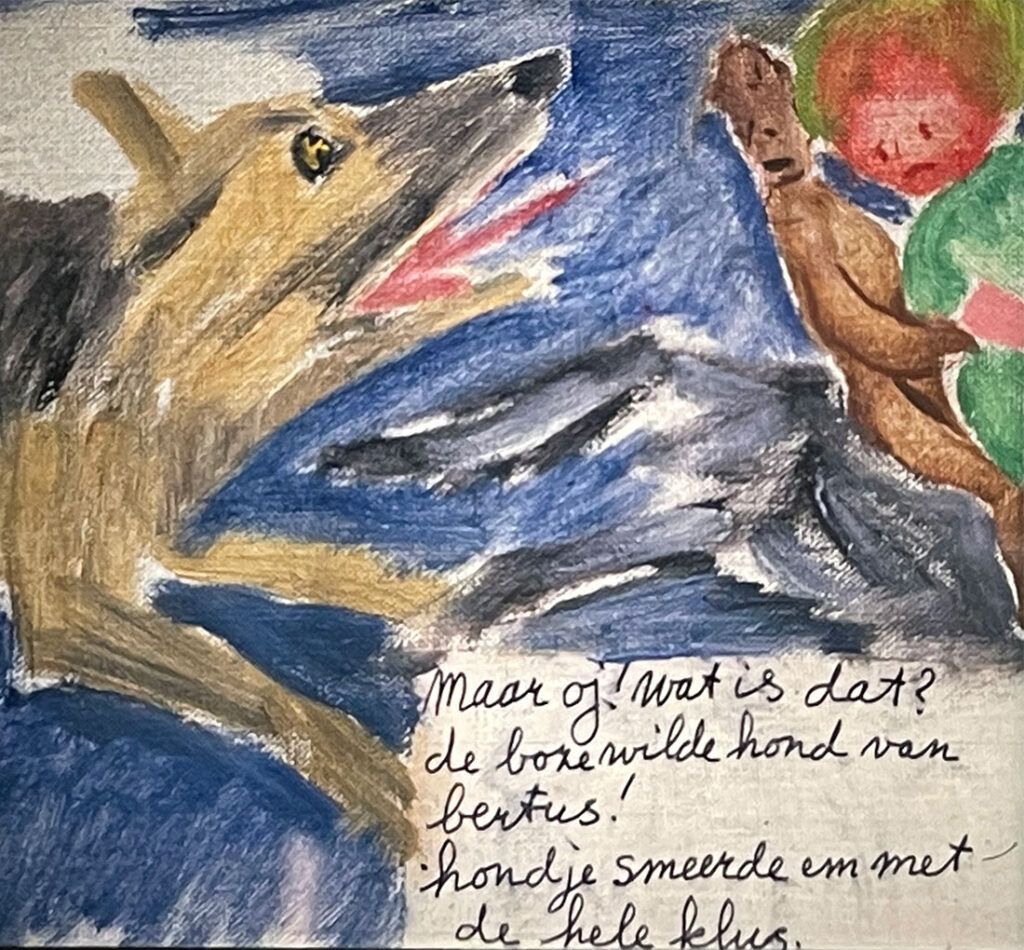 Maar oj! wat is dat?
de boze wilde hond van
bertus!
hondje smeerde em met
de hele klus.